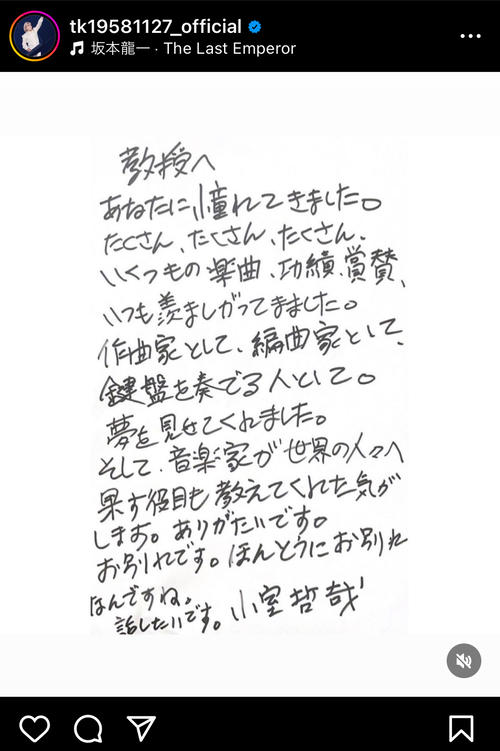 tk19581127_official
坂本龍一 · The Last Emperor
教授へ
あなたに憧れてきました。
たくさん、たくさん、たくさん、
いくつもの楽曲、功績、賞賛、
いつも羨ましがってきました。
作曲家として、編曲家として、
鍵盤を奏でる人として。
夢を見せてくれました。
そして、音楽家が世界の人々へ
果す役目も教えてくれた気が
します。ありがたいです。
お別れです。ほんとうにお別れ
なんですね。
話したいです。小室哲哉